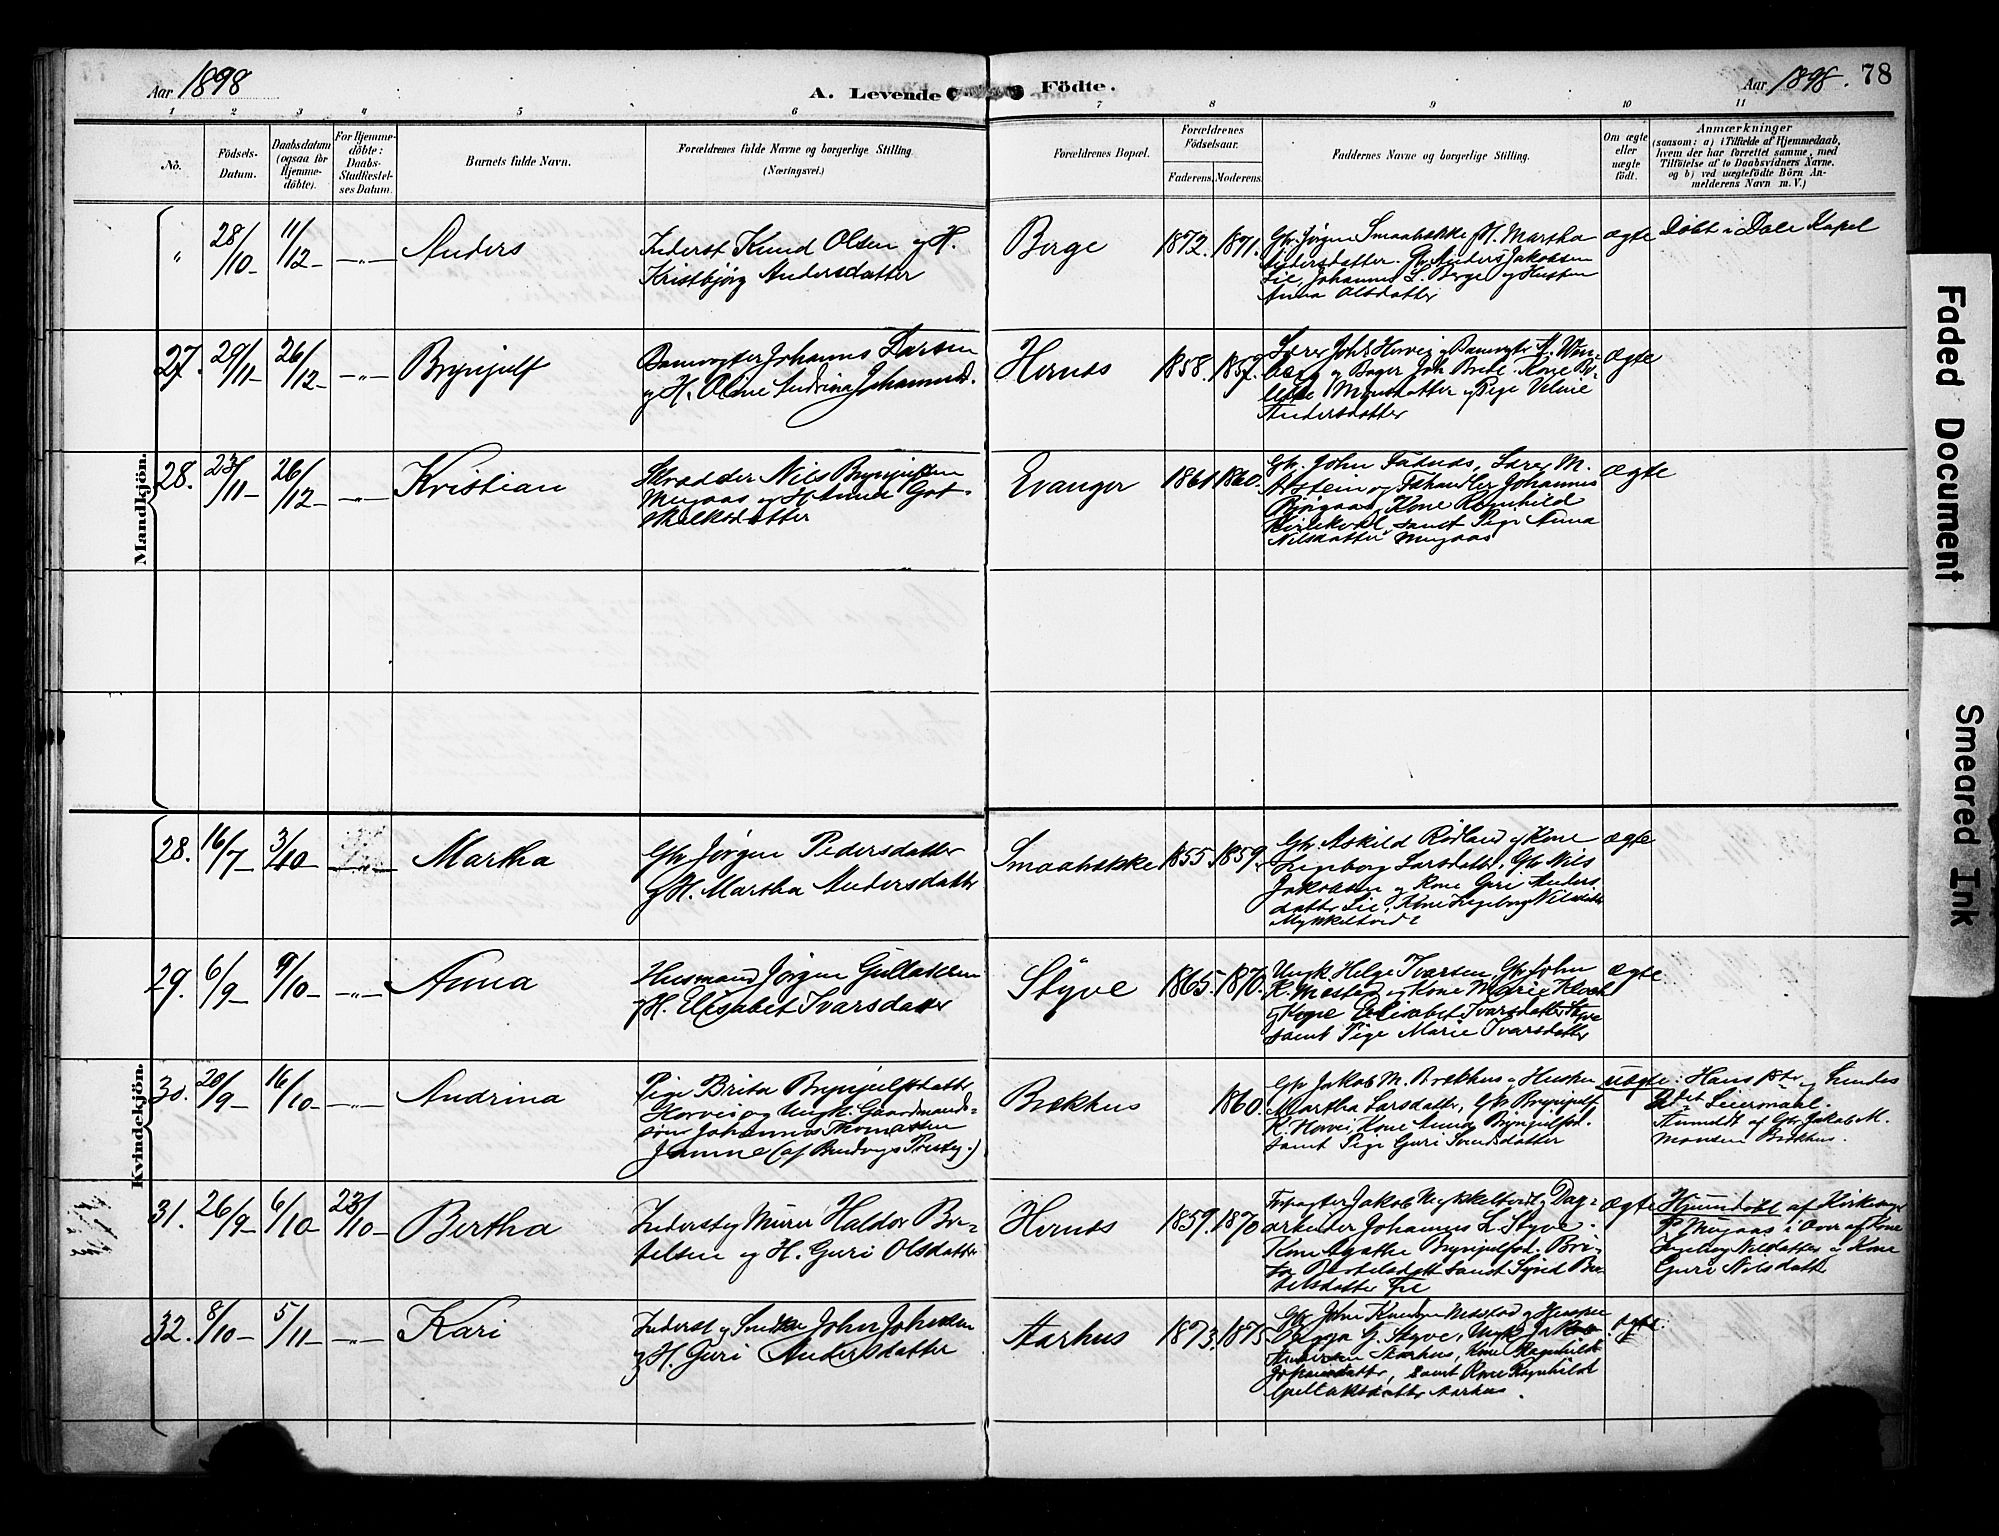 Aar 1898
A. Levende Födte.
Aar 1898.
78
1 2 3 4 5 6 7 8 9 10 11
No.
Födsels-
Datum.
Daabsdatum
(ogsaa for
Hjemme-
döbte).
For Hjemme-
döbte:
Daabs-
Stadfæstel-
ses Datum.
Barnets fulde Navn.
Forældrenes fulde Navne og borgerlige Stilling.
(Næringsvei.)
Forældrenes Bopæl.
Forældrenes
Födselsaar.
Faderens. Moderens.
Faddernes Navne og borgerlige Stilling.
Om ægte
eller
uægte
födt.
Anmærkninger
(saasom: a) i Tilfælde af Hjemmedaab,
hvem der har forrettet samme, med
Tilföielse af to Daabsvidners Navne.
og b) ved uægtefödte Börn An-
melderens Navn m. V.)
Mandkjön.
" 28/10 - 11/12 - -"- Anders
Inderst Knud Olsen og H.
Kristbjørg Andersdatter
Berge 1872. 1871.
Gbr. Jørgen Smaabrekke H. Martha
Andersdatter. Gbr. Anders Jakobsen
Lie, Johannes L. Berge og Hustru
Anna Olsdatter
ægte
Döbt i Dale Kapel
27. 29/11 - 26/12 - -"- Brynjulf
Banevogter Johannes Larsen
og H. Oline Andrina Johannesd.
Hernes 1858. 1857.
Lærer Johs Horvei og Banevogter
og Bager Joh. Kone
Monsdatter og Pige
Andersdatter
ægte
28. 23/11 - 26/12 - -"- Kristian
Skrædder Nils Brynjulfsen
Mugaas og H. Anna Got-
skalksdatter
Evanger 1861 1860.
Gbr. John Fadnes, Lærer M.
og Johannes
Kone Ragnhild
samt Pige Anna
Nilsdatter Mugaas
ægte
Kvindekjön.
28. 16/7 - 3/10 - Martha
Gbr Jørgen Pedersdatter
og H. Martha Andersdatter
Smaabrekke 1855. 1859.
Gbr. Askild Rødland og Kone
Ingeborg Larsdatter, Gbr Nils
Jakobsen og Kone Guri Anders
datter Lie, Kone Ingeborg Nilsdatter
ægte
29. 6/9 - 9/10 - -"- Anna
Husmand Jørgen Gullaksen
og H. Elisabet Ivarsdatter
Styve 1865. 1870.
Ungk Helge Ivarsen, Gbr. John
K. Mestad og Kone Marie
og Kone Elisabet Ivarsdatter Styve
samt Pige Marie Ivarsdatter
ægte
30. 20/9 - 16/10 - -"- Andrina
Pige Brita Brynjulfsdatter
Horvei og Ungk. Gaardmands-
søn Johannes Thomassen
(af Bruviks Præstg.)
Brækhus 1860.
Gbr Jakob M. Brækhus og Hustru
Martha Larsdatter, Gbr Brynjulf
K. Horvei, Kone Anna Brynjulfsd.
samt Pige Guri Svendsdatter
uægte.
Hans 1ste og hendes
2det Leiermaal.
Anmeldt af Gbr. Jakob M.
Monsen Brækhus.
31. 26/9 - 6/10 - 23/10 - Bertha
Inderst og Murer Haldor Ber-
telsen og H. Guri Olsdatter
Hernes 1859. 1870
Forpagter Jakob og Dag-
arbeider Johannes L. Styve.
Kone Agathe Brynjulfsd. Bri-
samt Synd Ber-
telsdatter
ægte
Hjemmedøbt af Kirkesanger
P. Mugaas i Overvær af Kone
Ingeborg Nilsdatter og Kone
Guri Nilsdatter
32. 8/10 - 5/11 - -"- Kari
Inderst og Snedker John Johnsen
og H. Guri Andersdatter
Aarhus 1873. 1875
Gbr. John Knudsen Mestad og
G. Styve, Ungk Jakob
Andersen Aarhus, Kone Ragnhild
Johannesdatter, samt Kone Ragnhild
Gullaksdatter Aarhus.
ægte
Faded Document
Smeared Ink